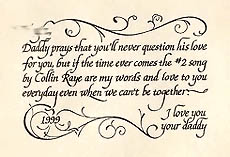 Daddy prays that you'll never question his love
for you, but if the time ever comes the #2 song
by Collin Raye are my words and love to you
everyday even when we can't be together.
1999
I love you
your daddy